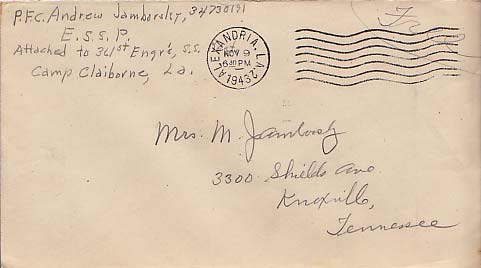 P.F.C. Andrew Jamborsky, 34730191
E.S.S.P.
Attached to 361st Engr's, S.S.
Camp Claiborne, La.
ALEXANDRIA, LA.
NOV 9
630 PM
1943
Free
Mrs. M. Jamborsky
3300 Shields Ave.
Knoxville,
Tennessee